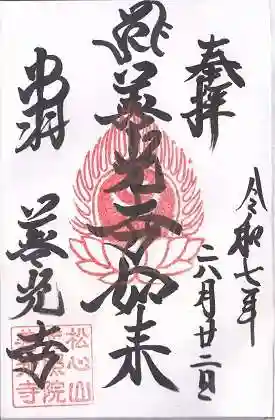 奉拝
令和七年
六月廿二日
善光寺如来
出羽
善光寺
松心山